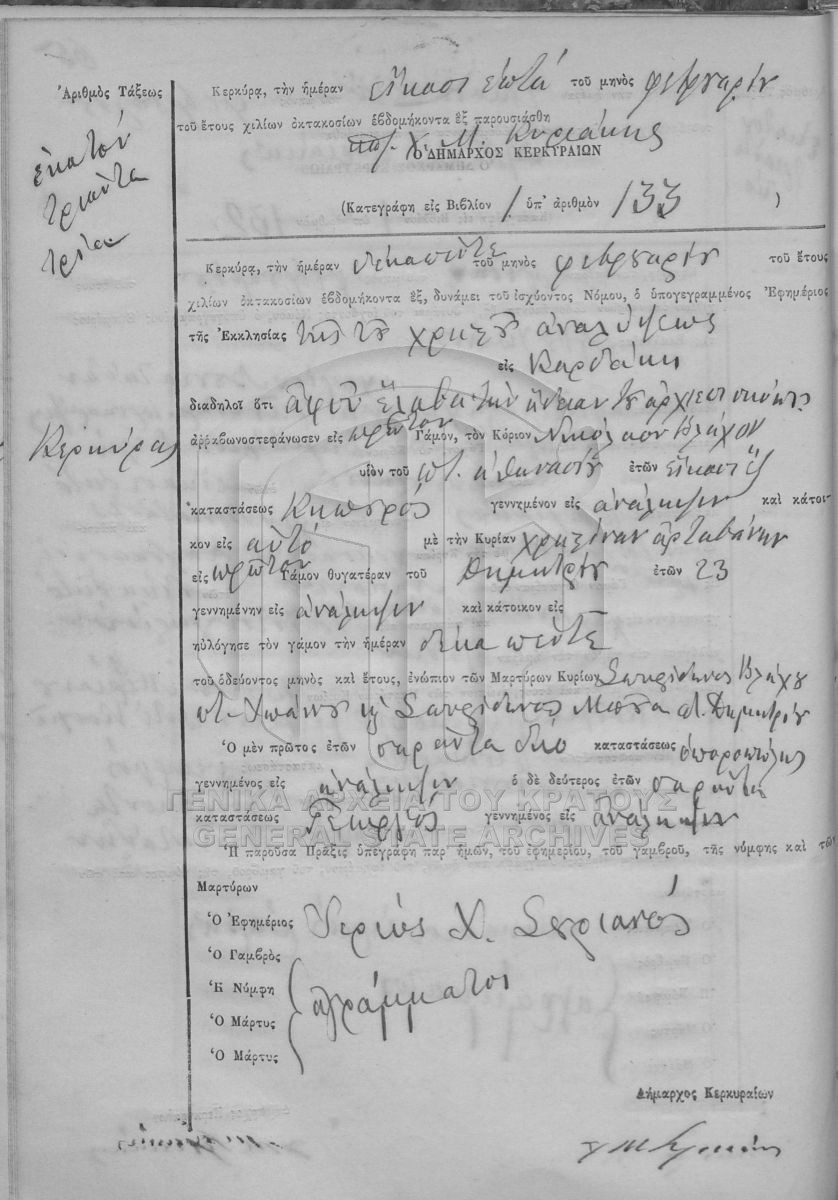 Ἀριθμὸς Τάξεως
ἑκατὸν
τριάντα
τρία
Κερκύρᾳ, τὴν ἡμέραν εἴκοσι ἑπτὰ τοῦ μηνὸς φεβρουαρίου
τοῦ ἔτους χιλίων ὀκτακοσίων ἑβδομήκοντα ἓξ παρουσιάσθη
Χ. Μ. Κυριάκης
Ὁ ΔΗΜΑΡΧΟΣ ΚΕΡΚΥΡΑΙΩΝ
(Κατεγράφη εἰς Βιβλίον 1 ὑπ' ἀριθμὸν 133 )
Κερκύρᾳ, τὴν ἡμέραν δεκαπέντε τοῦ μηνὸς φεβρουαρίου τοῦ ἔτους
χιλίων ὀκτακοσίων ἑβδομήκοντα ἕξ, δυνάμει τοῦ ἰσχύοντος Νόμου, ὁ ὑπογεγραμμένος Ἐφημέριος
τῆς Ἐκκλησίας τῆς τοῦ χριστοῦ ἀναλήψεως
εἰς Καρδάκι
διαδηλοῖ ὅτι ἀφοῦ ἔλαβα τὴν ἄδειαν τοῦ ἀρχιεπισκόπου
Κερκύρας
ἀῤῥαβωνοστεφάνωσεν εἰς πρῶτον Γάμον, τὸν Κύριον Νικόλαον Βλάχον
υἱὸν τοῦ ποτ. ἀθανασίου ἐτῶν εἴκοσι ἓξ
καταστάσεως Κηπουρός γεννημένον εἰς ἀνάληψιν καὶ κάτοι-
κον εἰς αὐτό μὲ τὴν Κυρίαν χρηστίναν ἀρταβάνην
εἰς πρῶτον Γάμον θυγατέραν τοῦ Δημητρίου ἐτῶν 23
γεννημένην εἰς ἀνάληψιν καὶ κάτοικον εἰς
ηὐλόγησε τὸν γάμον τὴν ἡμέραν δέκα πέντε
τοῦ ὁδεύοντος μηνὸς καὶ ἔτους, ἐνώπιον τῶν Μαρτύρων Κυρίων Σπυρίδωνος Βλάχου
ποτ. Ἰωάννου καὶ Σπυρίδωνος ποτ. Δημητρίου
Ὁ μὲν πρῶτος ἐτῶν σαράντα δύο καταστάσεως ὀπωροπώλης
γεννημένος εἰς ἀνάληψιν ὁ δὲ δεύτερος ἐτῶν σαράντα
ΓΕΝΙΚΑ ΑΡΧΕΙΑ ΤΟΥ ΚΡΑΤΟΥΣ
καταστάσεως Γεωργός γεννημένος εἰς ἀνάληψιν
GENERAL STATE ARCHIVES
Ἡ παροῦσα Πρᾶξις ὑπεγράφη παρ' ἡμῶν, τοῦ ἐφημερίου, τοῦ γαμβροῦ, τῆς νύμφης καὶ τῶν
Μαρτύρων
Ὁ Ἐφημέριος Ἱερεὺς Χ. Σουριανός
Ὁ Γαμβρὸς
Ἡ Νύμφη ἀγράμματοι
Ὁ Μάρτυς
Ὁ Μάρτυς
Δήμαρχος Κερκυραίων